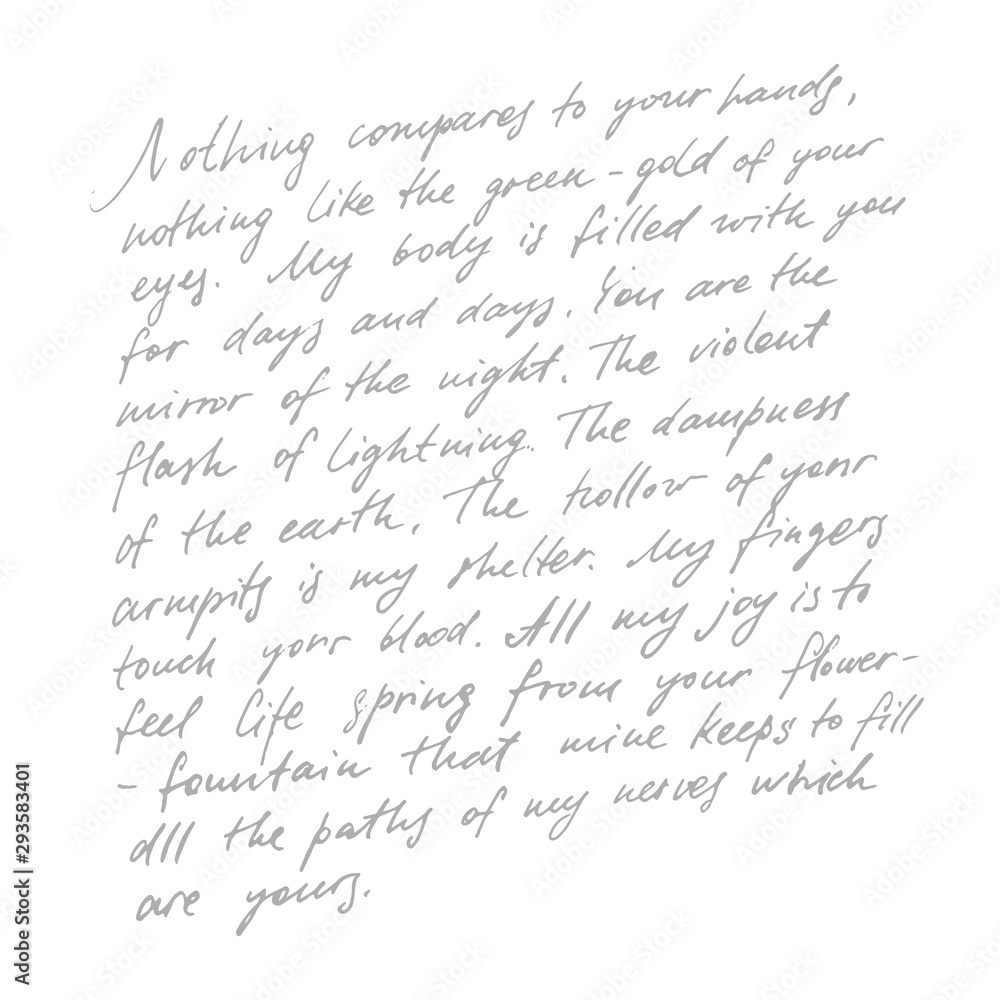 Nothing compares to your hands,
nothing like the green-gold of your
eyes. My body is filled with you
for days and days. You are the
mirror of the night. The violent
flash of lightning. The dampness
of the earth. The hollow of your
armpits is my shelter. My fingers
touch your blood. All my joy is to
feel life spring from your flower-
- fountain that mine keeps to fill
all the paths of my nerves which
are yours.
Adobe Stock | #293583401